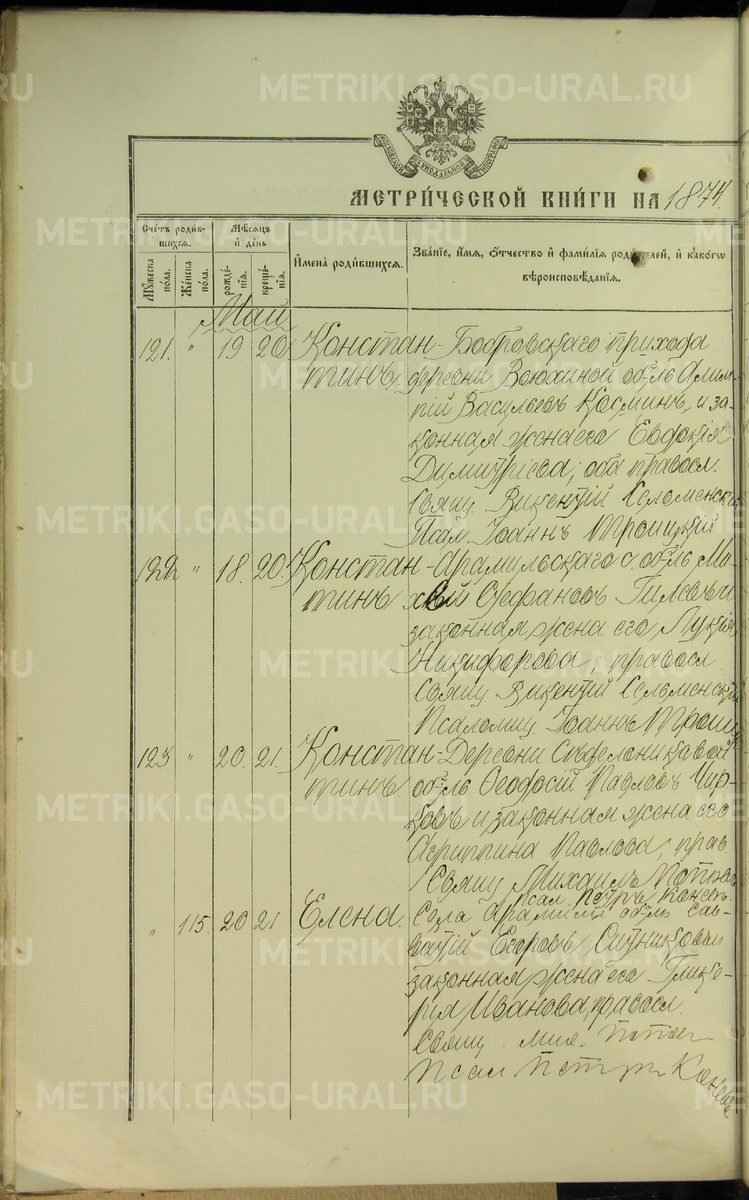 МОСКОВСКОЙ СѴНОДАЛЬНОЙ ТИПОГРАФІИ
МЕТРИЧЕСКОЙ КНИГИ НА 1874.
Счетъ родившихся.
Мужеска пола.
Женска пола.
Мѣсяцъ и день
рожденія.
крещенія.
Имена родившихся.
Званіе, имя, отчество и фамилія родителей, и какого
вѣроисповѣданія.
Май
121. " 19 20 Констан- Бобровскаго прихода
тинъ деревни Всюхиной об-ль Алим-
пій Васильевъ Косминъ, и за-
конная жена его Евдокія
Димитріева; оба правосл.
Свящ. Викентій Селеменск
Псал. Іоаннъ Троицкій
122 " 18. 20. Констан- Арамильскаго с. об-ль Ма-
тинъ хѣй Стефановъ Гилевъ и
законная жена его, Лукія
Никифорова; правосл.
Свящ. Викентій Селеменскій
Псаломщ. Іоаннъ Троиц
123 " 20. 21. Констан- Деревни
тинъ об-ль Ѳеодосій Павловъ Чир-
ковъ и законная жена его
Агриппина Павлова; прав
Свящ. Михаилъ Поповъ
Псал. Петръ Коневъ.
" 115. 20 21 Елена. Села Арамили об-ль Сав-
ватій Егоровъ Ситниковъ и
законная жена его Глике-
рія Иванова, правосл.
Свящ. Мих. Попов
Псал Петръ Конев
METRIKI.GASO-URAL.RU